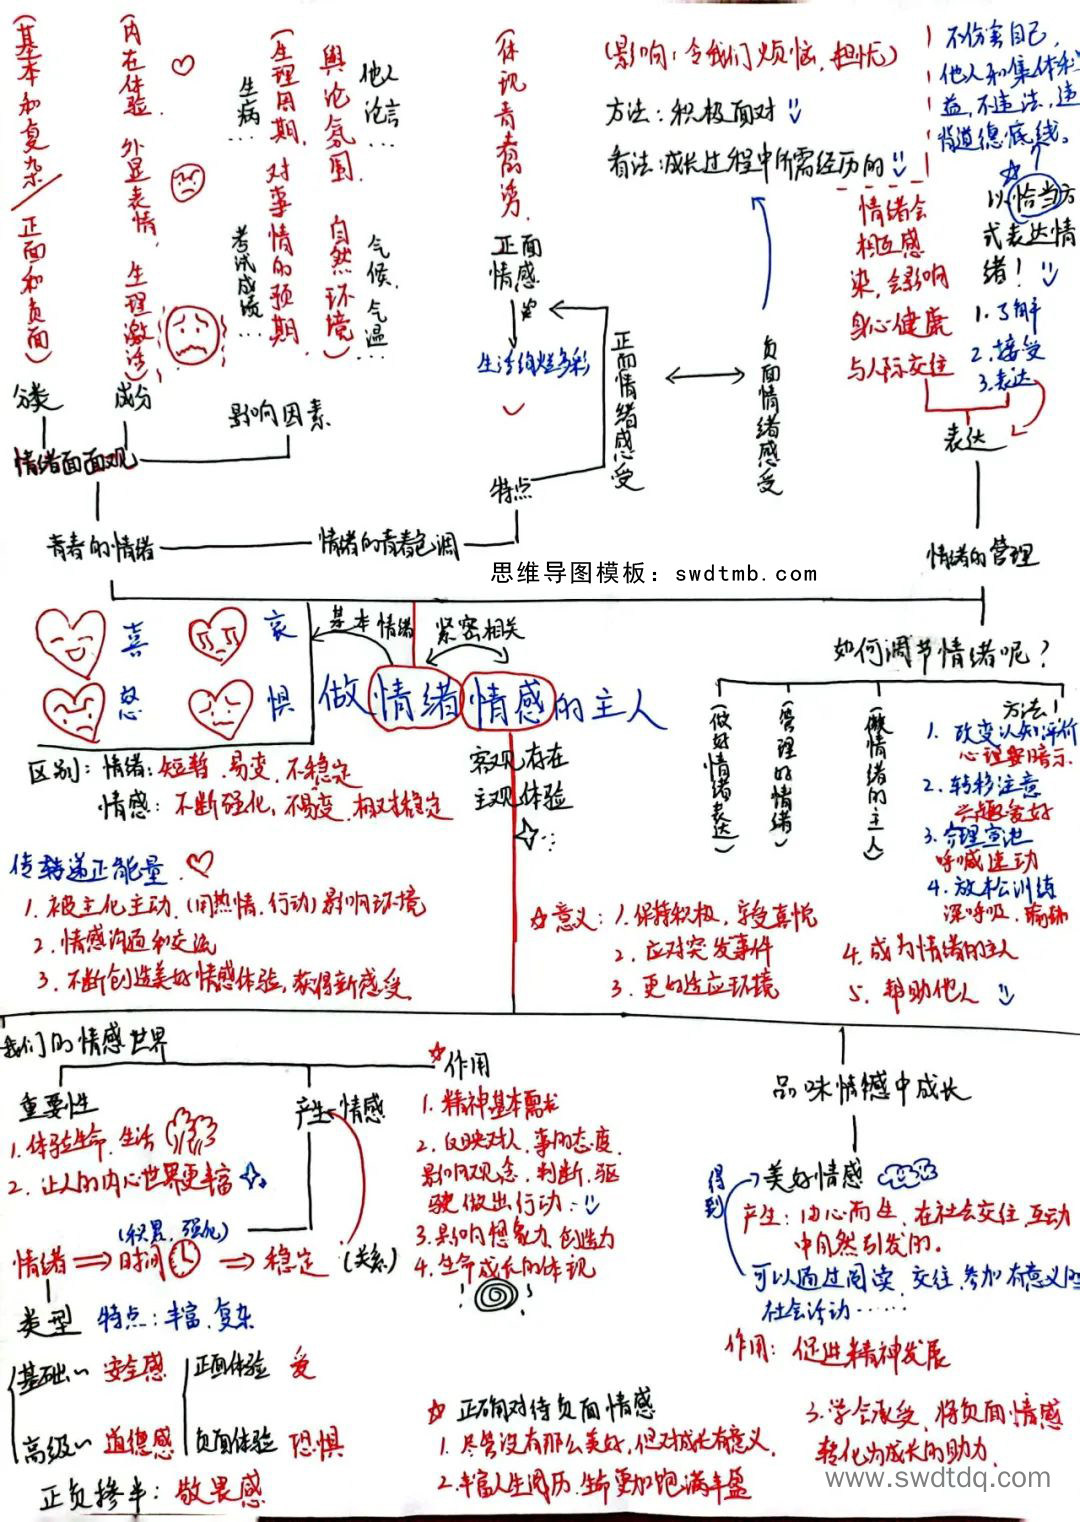 (基本和复杂/正面和负面)
分类
(内在体验、外显表情、生理激活)
成分
(生理周期、对事情的预期、舆论氛围、自然环境)
生病…
考试成绩…
他人论言…
气候、气温…
影响因素
情绪面面观
青春的情绪
情绪的青春色调
特点
(体现青春活力、
正面情感
生活绚烂多彩
正面情绪感受
负面情绪感受
(影响:令我们烦恼、担忧)
方法:积极面对
看法:成长过程中所需经历的
不伤害自己,
他人和集体利
益,不违法,违
背道德底线。
以恰当方
式表达情
绪!
1.了解
2.接受
3.表达
情绪会
相互感
染,会影响
身心健康
与人际交往
表达
情绪的管理
思维导图模板:swdtmb.com
喜
哀
怒
惧
基本情绪
紧密相关
做情绪情感的主人
区别:情绪:短暂、易变、不稳定
情感:不断强化、不易变、相对稳定
客观存在
主观体验
如何调节情绪呢?
(做好情绪表达)
(管理的情绪)
(做情绪的主人)
方法!
1.改变认知评价
心理暗示
2.转移注意
兴趣爱好
3.合理宣泄
呼喊运动
4.放松训练
深呼吸、瑜伽
传递正能量
1.被主化主动、(用热情、行动)影响环境
2.情感沟通和交流
3.不断创造美好情感体验,获得新感受
意义:1.保持积极、享受喜悦
2.应对突发事件
3.更好适应环境
4.成为情绪的主人
5.帮助他人
我们的情感世界
重要性
1.体验生命、生活
2.让人的内心世界更丰富
产生情感
(积累、强化)
情绪⇒时间⇒稳定
(关系)
类型
特点:丰富、复杂
基础~安全感
高级~道德感
正面体验 爱
负面体验 恐惧
正负掺半:敬畏感
作用
1.精神基本需求
2.反映对人、事的态度、
影响观念、判断、驱
驶做出行动
3.影响想象力、创造力
4.生命成长的体现
正确对待负面情感
1.尽管没有那么美好,但对成长有意义,
2.丰富人生阅历、生命更加饱满丰盈
3.学会承受、将负面情感
转化为成长的助力
品味情感中成长
得到
美好情感
产生:由心而生、在社会交往、互动
中自然引发的。
可以通过阅读、交往、参加有意义的
社会活动……
作用:促进精神发展
www.swdtdq.com